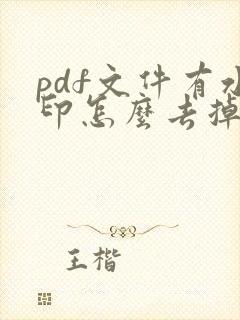 pdf文件有水
印怎麼去掉
王楷